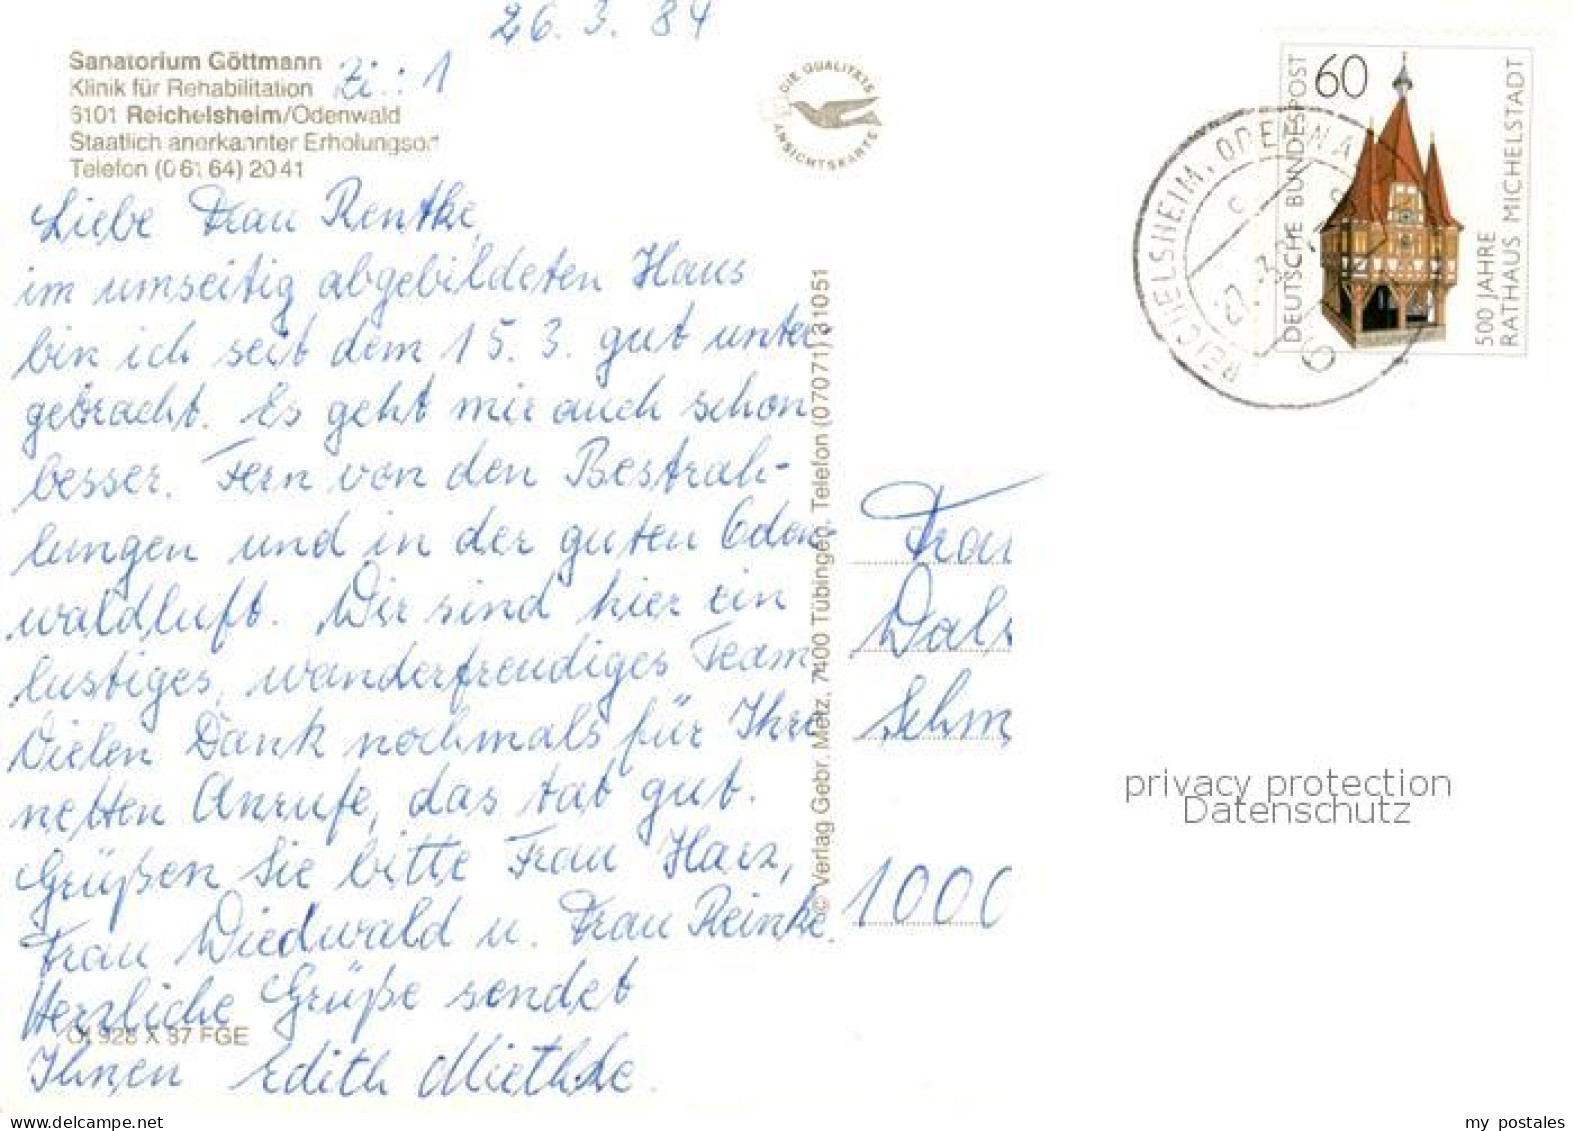 26. 3. 84
Sanatorium Göttmann
Klinik für Rehabilitation Zi.: 1
6101 Reichelsheim/Odenwald
Staatlich anerkannter Erholungsort
Telefon (0 61 64) 20 41
Liebe Frau Renthe,
im umseitig abgebildeten Haus
bin ich seit dem 15. 3. gut unter-
gebracht. Es geht mir auch schon
besser. Fern von den Bestrah-
lungen und in der guten Oden-
waldluft. Wir sind hier ein
lustiges, wanderfreudiges Team
Vielen Dank nochmals für Ihre
netten Anrufe, das tat gut.
Grüßen Sie bitte Frau Harz,
Frau Diedwald u. Frau Reinke.
Herzliche Grüße sendet
Ihnen Edith Miethke
928 X 87 FGE
© Verlag Gebr. Metz, 7400 Tübingen, Telefon (07071) 31051
DIE QUALITÄTS
ANSICHTSKARTE
DEUTSCHE BUNDESPOST
60
500 JAHRE
RATHAUS MICHELSTADT
REICHELSHEIM, ODENWA
27.-3.
6
Frau
Schm
1000
privacy protection
Datenschutz
www.delcampe.net
my postales